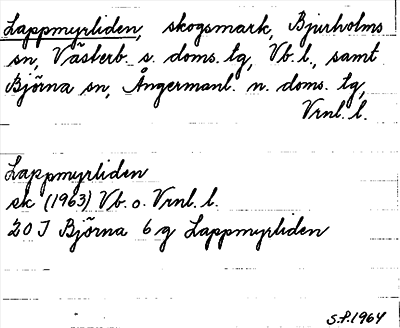 Lappmyrliden, skogsmark, Bjurholms
sn, Västerb. s. doms. tg, Vb. l., samt
Björna sn, Ångermanl. n. doms. tg,
Vrnl. l.
Lappmyrliden
sk (1963) Vb. o. Vrnl. l.
20 I Björna 6 g Lappmyrliden
S.P. 1964